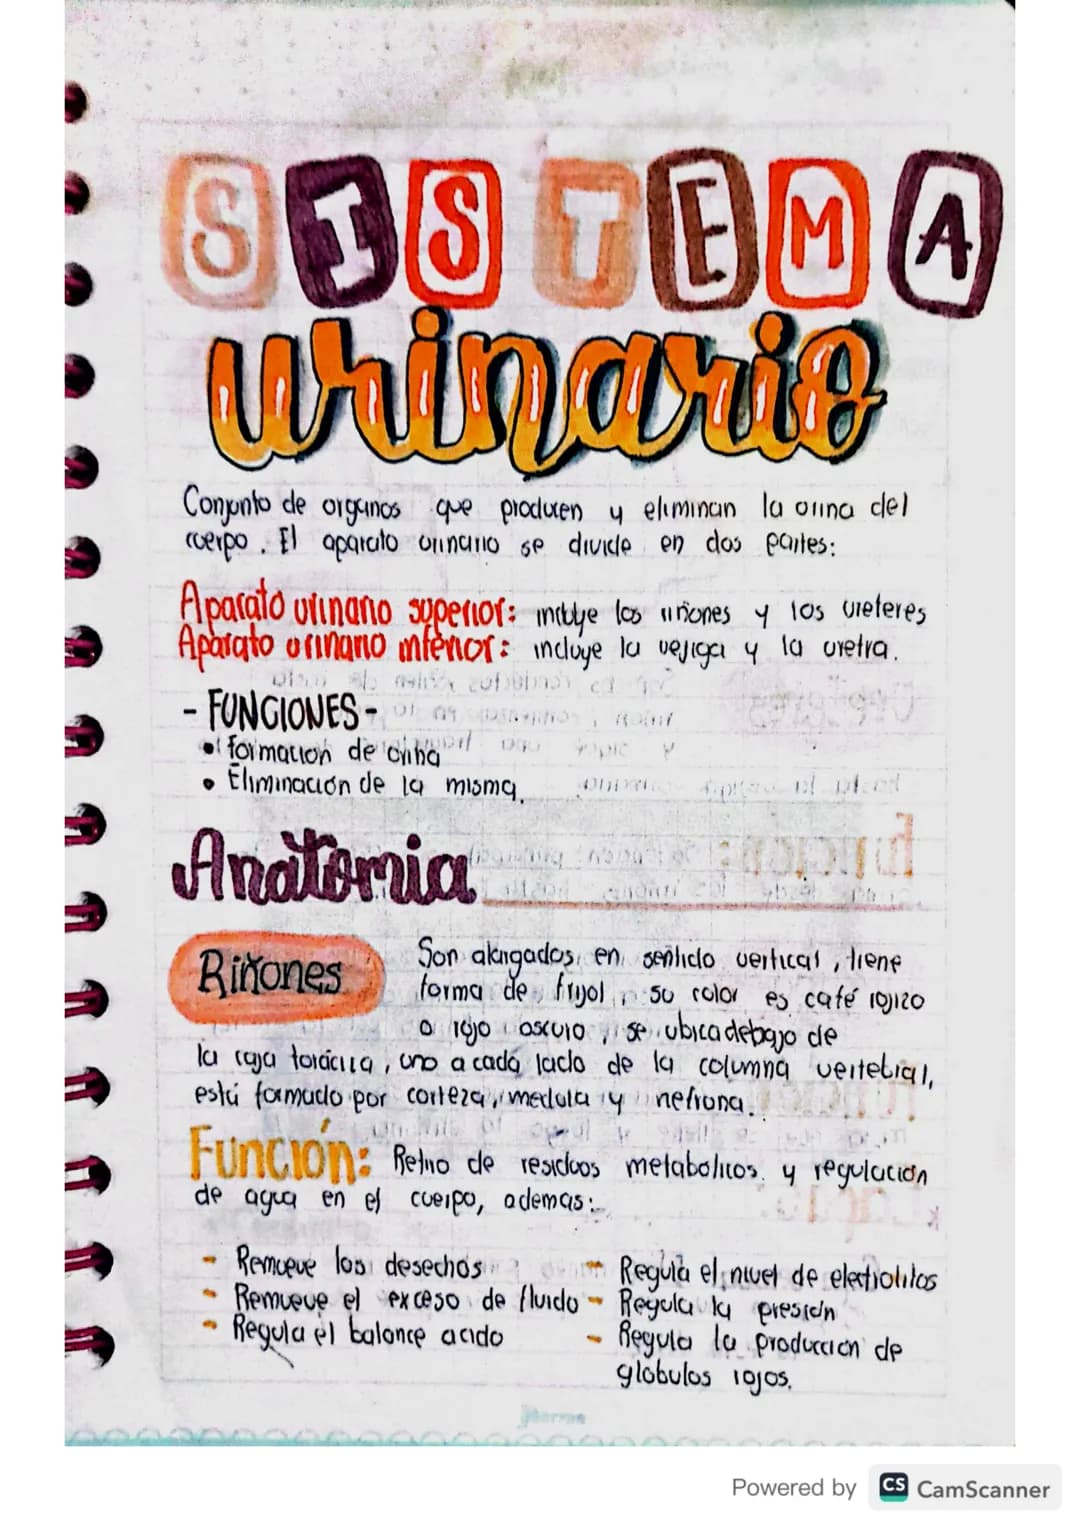 SISTEMA
urinario
Conjunto de organos que producen y eliminan la orina del
cuerpo. El aparato urinario se divide en dos partes:
Aparato urinario superior: incluye los riñones y los ureteres
Aparato urinario inferior: incluye la vejiga y la uretra.
- FUNCIONES -
• formacion de orina
• Eliminación de la misma.
Anatomia
Riñones
Son alargados en sentido vertical, tiene
forma de frijol, su color es café rojizo
o rojo oscuro, se ubica debajo de
la caja torácica, uno a cada lado de la columna vertebral,
está formado por corteza, medula y nefrona.
Función: Retiro de residuos metabolicos y regulacion
de agua en el cuerpo, ademas:
- Remueve los desechos
- Remueve el exceso de fluido
- Regula el balance acido
- Regula el nivel de electrolitos
- Regula la presión
- Regula la produccion de
globulos rojos.
Powered by CS CamScanner